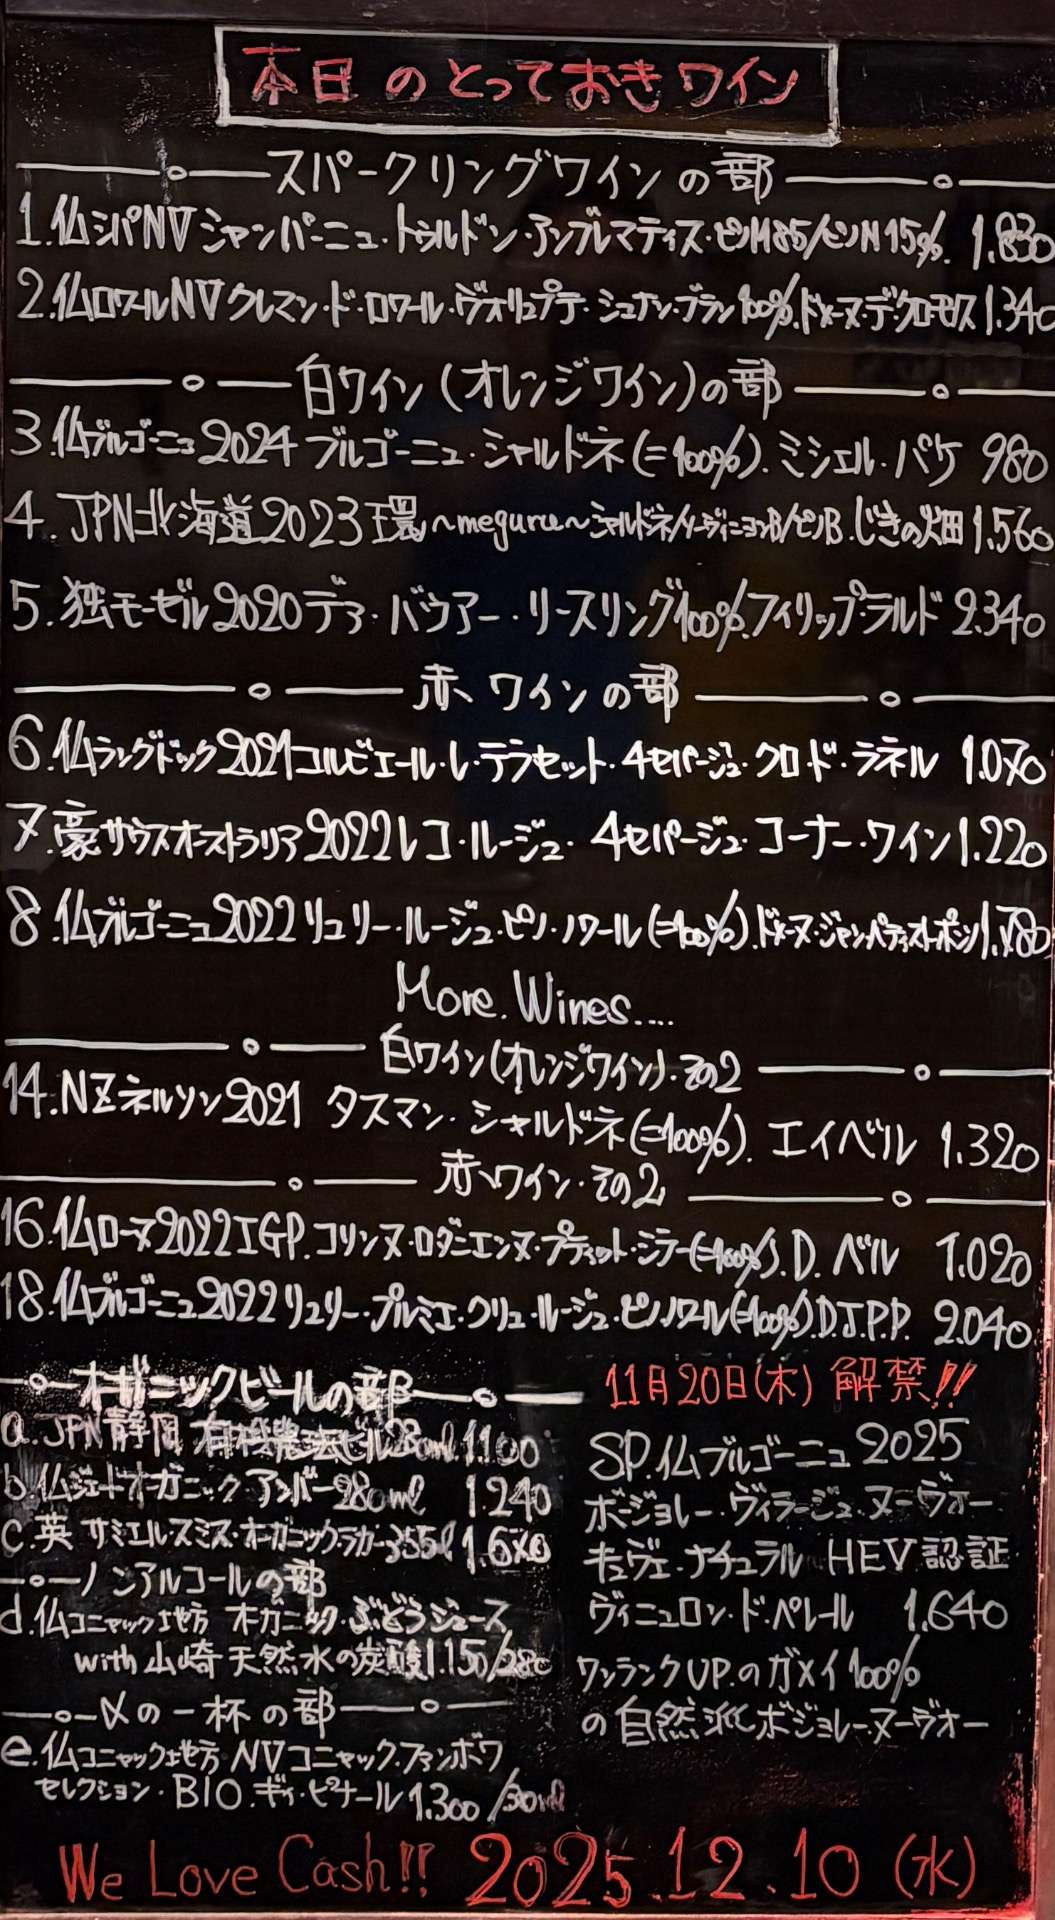 本日のとっておきワイン
スパークリングワインの部
1.仏シパNVシャンパーニュ・トゥルドン・アンブレマティス・ピノM85/ピノN15%. 1.830
2.仏ロワールNVクレマン・ド・ロワール・ヴォリュプテ・シュナン・ブラン100%.ドメーヌ・デ・クローモワス 1.340
白ワイン(オレンジワイン)の部
3.仏ブルゴーニュ2024 ブルゴーニュ・シャルドネ(=100%).ミシェル・バケ 980
4.JPN北海道2023環〜meguru〜シャルドネ/ソーヴィニヨンB/ピノB.じきの畑 1.560
5.独モーゼル2020デア・バウアー・リースリング100%.フィリップ・ラルド 2.340
赤ワインの部
6.仏ラングドック2021コルビエール・レ・テラセット・4セパージュ・クロ・ド・ラネル 1.070
7.豪サウスオーストラリア2022レコ・ルージュ・4セパージュ・コーナー・ワイン 1.220
8.仏ブルゴーニュ2022リュリー・ルージュ・ピノ・ノワール(=100%).ドメーヌ・ジャン・バティスト・ポンソ 1.780
More.Wines....
白ワイン(オレンジワイン)・その2
14.NZネルソン2021 タスマン・シャルドネ(=100%). エイベル 1.320
赤ワイン・その2
16.仏ローヌ2022IGP.コリンヌ・ロダニエンヌ・プティット・シラー(=100%).D. ベル 1.020
18.仏ブルゴーニュ2022リュリー・プルミエ・クリュ・ルージュ・ピノノワール(=100%).D.J.P.P. 2.040
オーガニックビールの部
a.JPN静岡 有機農法ビール 1.100
b.仏ジェードオーガニック アンバー280ml 1.240
c.英 サミエル・スミス・オーガニックラガー355ml
ノンアルコールの部
d.仏コニャック地方 オーガニック・ぶどうジュース
with山崎天然水の炭酸1.150/280
〆の一杯の部
e.仏コニャック地方 NV.コニャック.ファンボワ
セレクション・BIO.ギィ・ピナール1.300/30ml
11月20日(木)解禁!!
SP.仏ブルゴーニュ2025
ボージョレー・ヴィラージュ・ヌーヴォー
キュヴェ・ナチュラル HEV認証
ヴィニュロン・ド・ペレール 1.640
ワンランクUP.のガメイ100%
の自然派ボジョレーヌーヴォー
We Love Cash!! 2025.12.10(水)